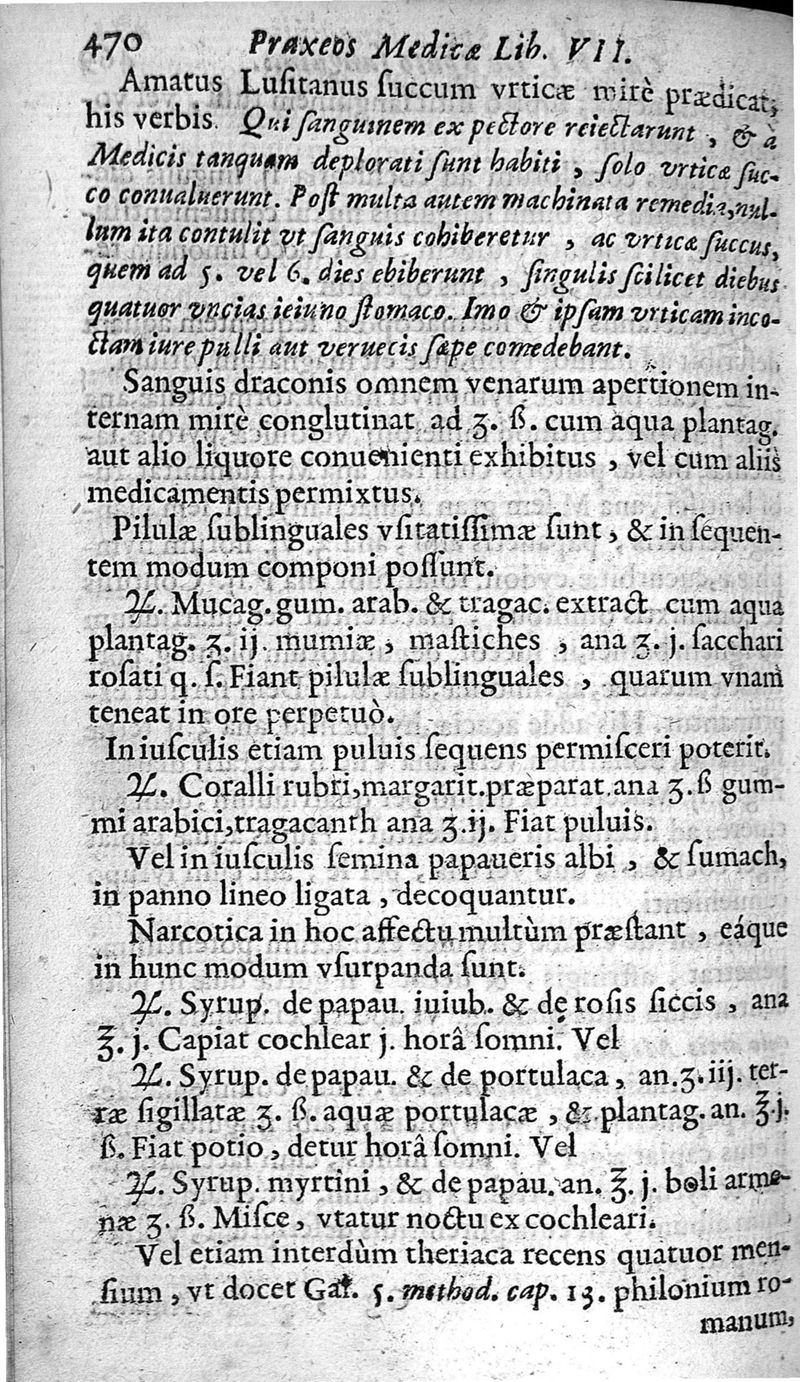 470 Praxeos Medicæ Lib. VII.
Amatus Luſitanus ſuccum vrticæ mirè prædicat,
his verbis. Qui ſanguinem ex pectore reiectarunt, & à
Medicis tanquam deplorati ſunt habiti, ſolo vrticæ ſuc-
co conualuerunt. Poſt multa autem machinata remedia, nul-
lum ita contulit vt ſanguis cohiberetur, ac vrticæ ſuccus,
quem ad 5. vel 6. dies ebiberunt, ſingulis ſcilicet diebus
quatuor vncias ieiuno ſtomaco. Imo & ipſam vrticam inco-
ctam iure pulli aut veruecis ſæpe comedebant.
Sanguis draconis omnem venarum apertionem in-
ternam mirè conglutinat ad ʒ. ß. cum aqua plantag.
aut alio liquore conuenienti exhibitus, vel cum aliis
medicamentis permixtus.
Pilulæ ſublinguales vſitatiſſimæ ſunt, & in ſequen-
tem modum componi poſſunt.
♃. Mucag. gum. arab. & tragac. extract cum aqua
plantag. ʒ. ij. mumiæ, maſtiches, ana ʒ. j. ſacchari
roſati q. ſ. Fiant pilulæ ſublinguales, quarum vnam
teneat in ore perpetuò.
In iuſculis etiam puluis ſequens permiſceri poterit.
♃. Coralli rubri, margarit. præparat. ana ʒ. ß gum-
mi arabici, tragacanth ana ʒ. ij. Fiat puluis.
Vel in iuſculis ſemina papaueris albi, & ſumach,
in panno lineo ligata, decoquantur.
Narcotica in hoc affectu multùm præſtant, eáque
in hunc modum vſurpanda ſunt.
♃. Syrup. de papau. iuiub. & de roſis ſiccis, ana
℥. j. Capiat cochlear j. horâ ſomni. Vel
♃. Syrup. de papau. & de portulaca, an. ʒ. iij. ter-
ræ ſigillatæ ʒ. ß. aquæ portulacæ, & plantag. an. ℥. j.
ß. Fiat potio, detur horâ ſomni. Vel
♃. Syrup. myrtini, & de papau. an. ℥. j. boli arme-
næ ʒ. ß. Miſce, vtatur noctu ex cochleari.
Vel etiam interdùm theriaca recens quatuor men-
ſium, vt docet Gal. 5. method. cap. 13. philonium ro-
manum,